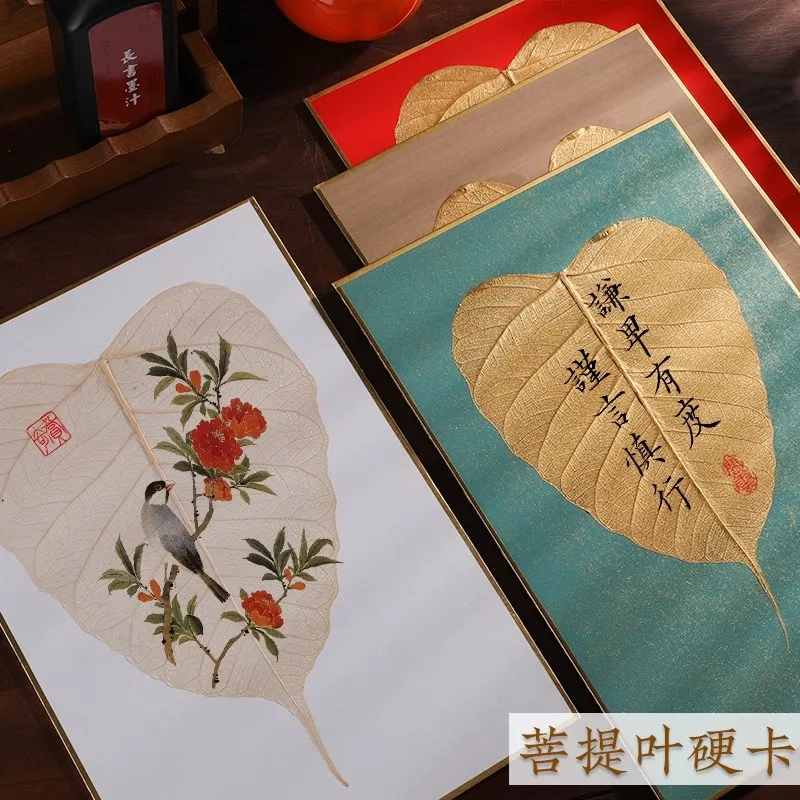 長書墨汁
謙卑有度
謹言慎行
菩提叶硬卡